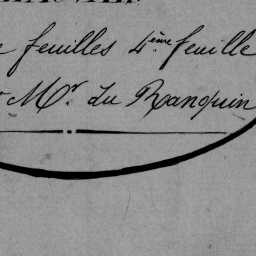 feuilles 4.ème feuille
Mr. Du Ranquin